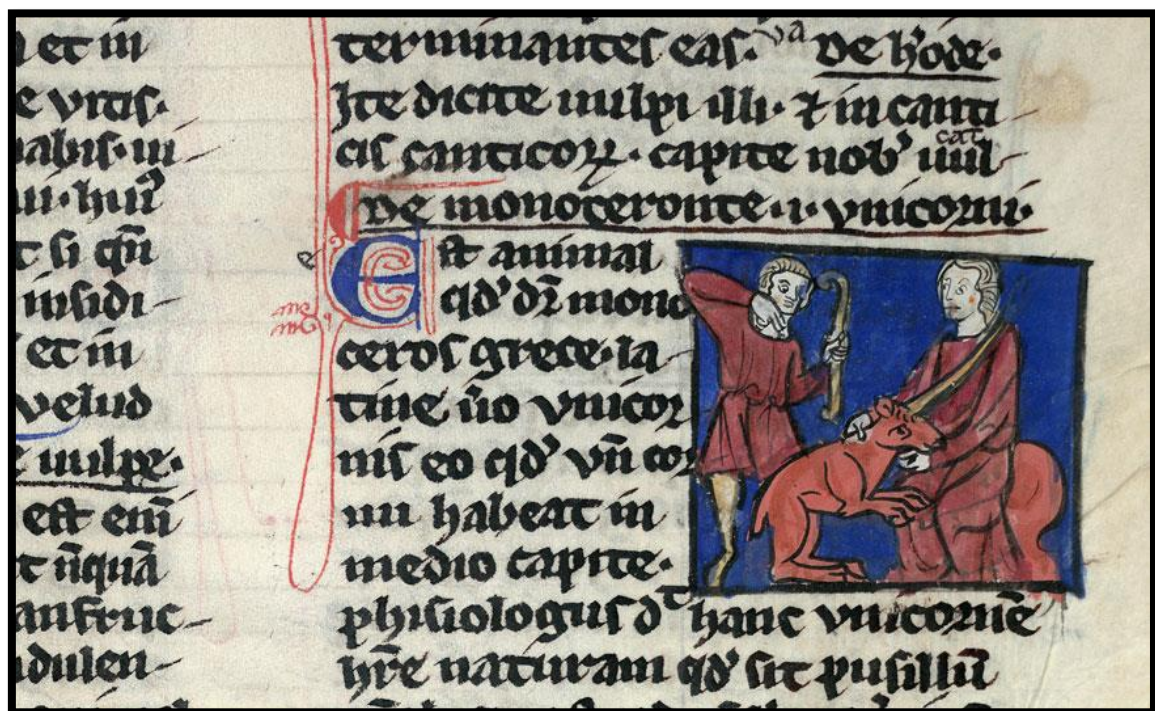 et in
e vitis·
nabis· in
ni· hui᷑
t si qn̄
insidi-
et in
velud
e uulpe·
est eni᷑
t nq̄uā
anfruc-
dulen-
terminantes eas· De h'ode·
Ite dicite uulpi illi· ⁊ in canti-
cis canticorꝝ· capite nob' uul-
De monoceronte· i· vnicorni·
Est animal
qd' dr̄ mono
ceros grece· la-
tine u̅o vnicor
nis eo qd' vn̄ cor
nu habeat in
medio capite·
phisiologus d᷑t hanc vnicornē
hr̄e naturam qd' sit pusillū